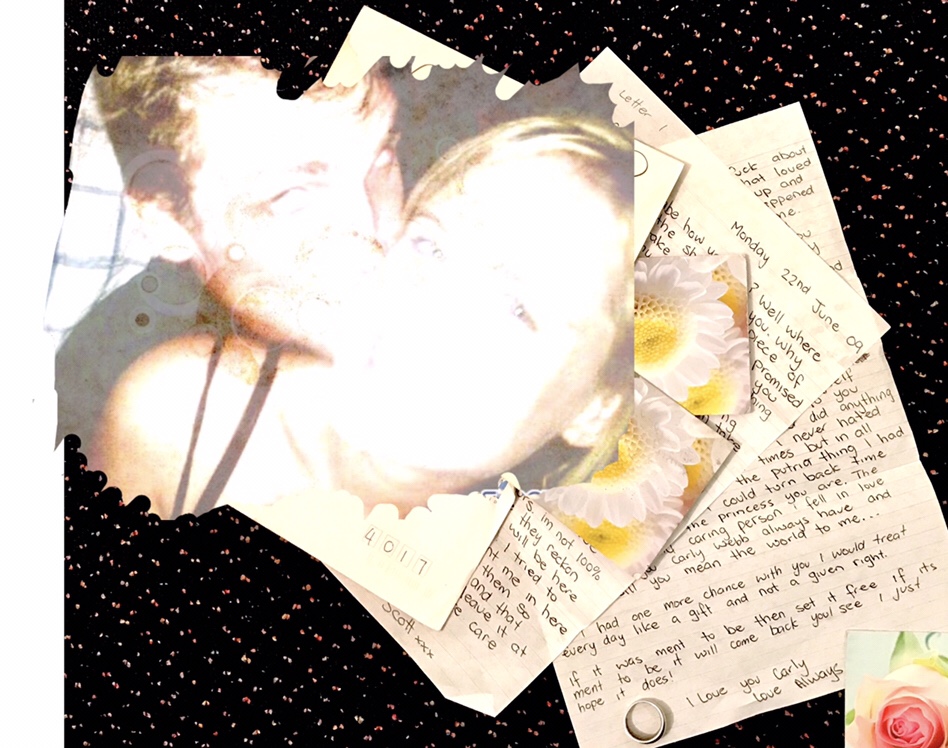 Letter 1
uck about
hat loved
up and
appened
me.
Monday 22nd June 09
be how
the sh
ake
well where
you. Why
piece of
promised
you
ing
take
elf
you
did anything
never hated
times but in all
the putria thing I had
could turn back time
the princess you are. The
caring person I fell in love
Carly Webb always have and
you mean the world to me...
had one more chance with you I would treat
every day like a gift and not a given right.
If it was ment to be then set it free if its
ment to be it will come back you'll see I just
hope it does!
I Love you Carly
Love Always
4017
rs im not 100%
they reckon
will be here
t I tried to
t me in here
them so
and that
leave it
e care at
Scott xxx